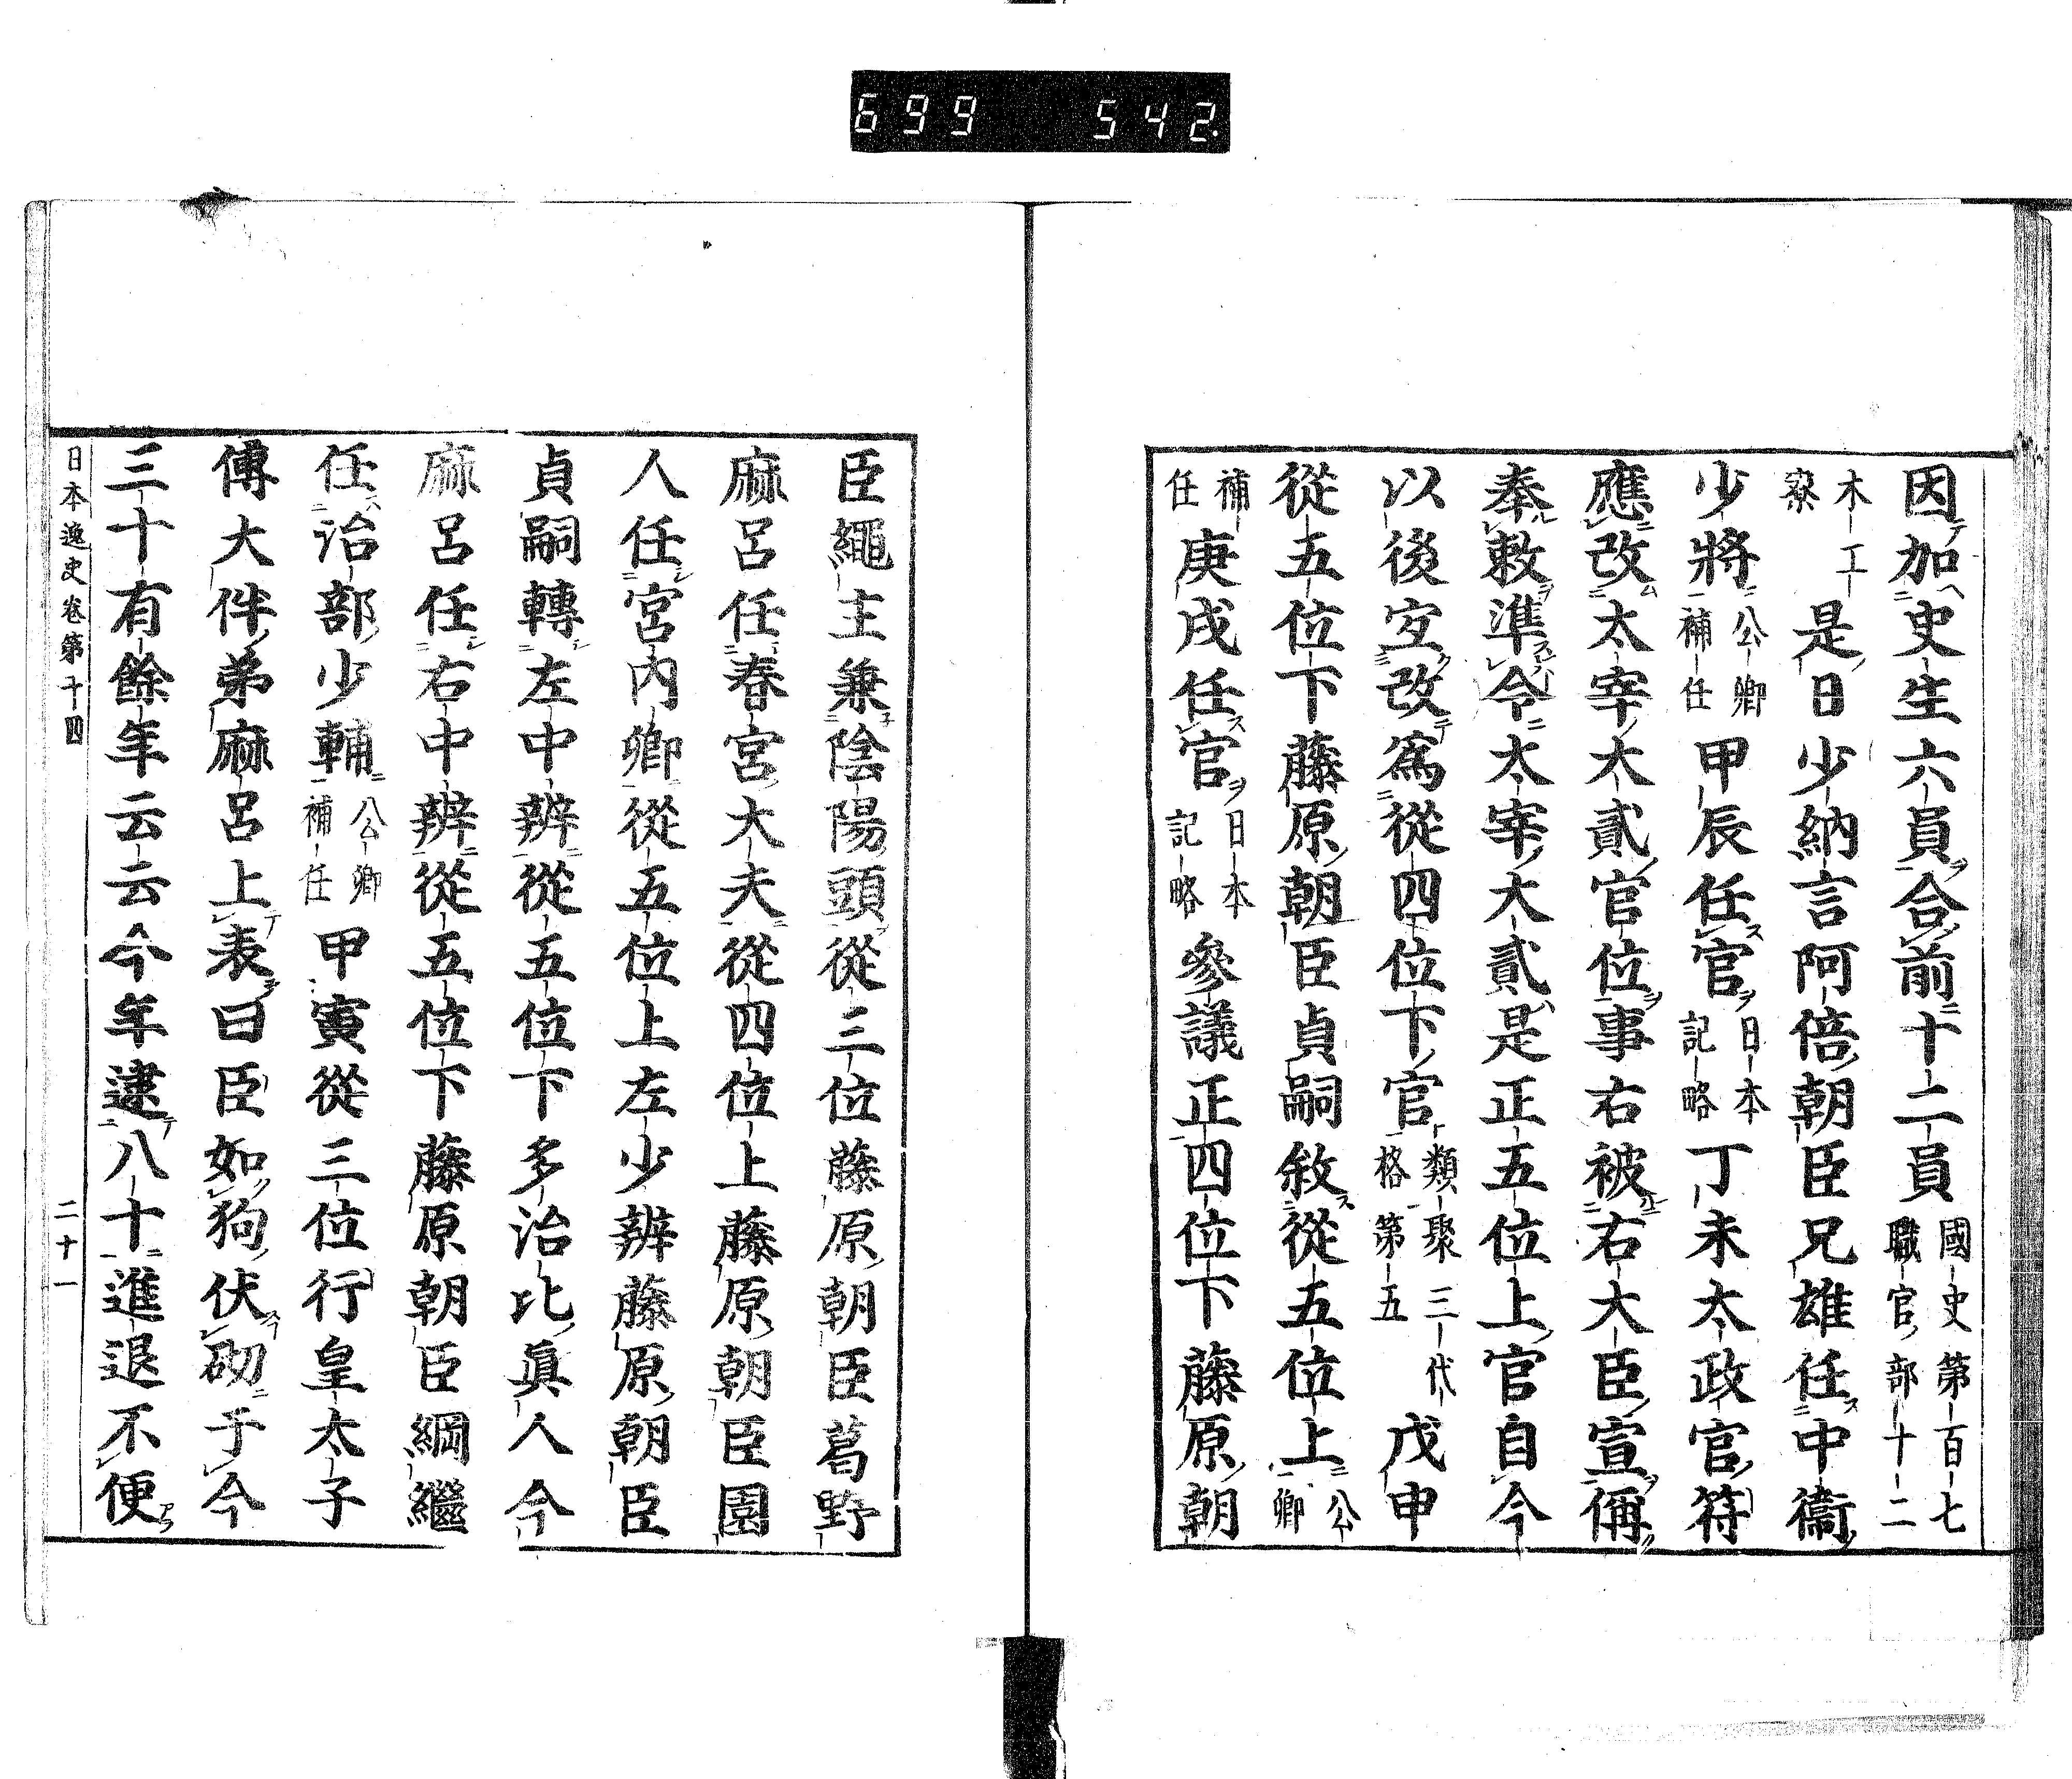 699 542.
因テ加ヘ史生六員ヲ合前十二員國史第百七職官部十二
木工寮是日少納言阿倍朝臣兄雄任ス中衞ノ
少將ニ公卿補任甲辰任ス官ヲ日本記略丁未太政官ノ符
應ニ改ム太宰ノ大貳ノ官位ヲ事右被ニ右大臣ノ宣ヲ偁ク
奉ルニ敕ヲ準スルニ令ニ太宰ノ大貳ハ是正五位上ノ官自今
以後宜ク改テ爲從四位下ノ官類聚三代格第五戊申
從五位下藤原ノ朝臣貞嗣敘ス從五位上ニ公卿
補任庚戌任ス官ヲ日本記略參議正四位下藤原ノ朝
臣繩主兼陰陽頭從三位藤原ノ朝臣葛野
麻呂任春宮ノ大夫ニ從四位上藤原ノ朝臣園
人任宮內卿從五位上左少辨藤原ノ朝臣
貞嗣轉左中辨ニ從五位下多治比ノ眞人今
麻呂任右中辨ニ從五位下藤原朝臣綱繼
任ス治部ノ少輔ニ公卿補任甲寅從三位行皇太子
傅大伴ノ弟麻呂上テ表ヲ曰臣如狗ノ伏砌ニ于今
三十有餘年云云今年逮テ八十ニ進退不便
日本逸史卷第十四 二十一